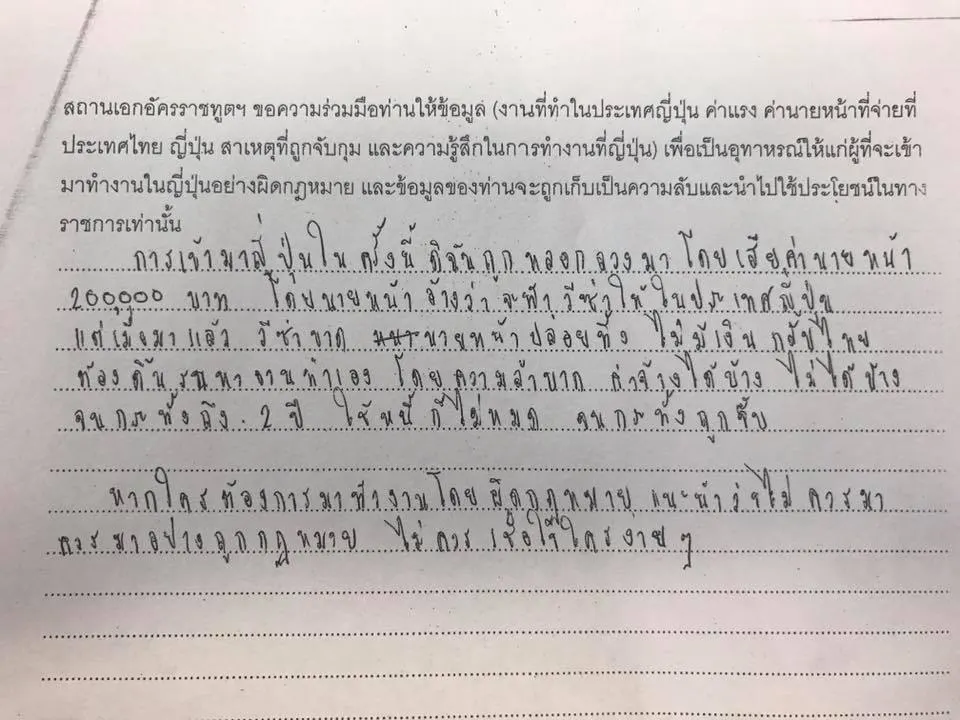 สถานเอกอัครราชทูตฯ ขอความร่วมมือท่านให้ข้อมูล (งานที่ทำในประเทศญี่ปุ่น ค่าแรง ค่านายหน้าที่จ่ายที่
ประเทศไทย ญี่ปุ่น สาเหตุที่ถูกจับกุม และความรู้สึกในการทำงานที่ญี่ปุ่น) เพื่อเป็นอุทาหรณ์ให้แก่ผู้ที่จะเข้า
มาทำงานในญี่ปุ่นอย่างผิดกฎหมาย และข้อมูลของท่านจะถูกเก็บเป็นความลับและนำไปใช้ประโยชน์ในทาง
ราชการเท่านั้น
การเข้ามาญี่ปุ่นในครั้งนี้ ดิฉันถูกหลอกลวงมา โดยเสียค่านายหน้า
200,000 บาท โดยนายหน้าอ้างว่าจะทำวีซ่าให้ในประเทศญี่ปุ่น
แต่เมื่อมาแล้ว วีซ่าขาด นายหน้าปล่อยทิ้ง ไม่มีเงินกลับไทย
ต้องดิ้นรนหางานทำเอง โดยความลำบาก ค่าจ้างได้บ้าง ไม่ได้บ้าง
จนกระทั้งถึง 2 ปี ใช้หนี้ก็ไม่หมด จนกระทั้งถูกจับ
หากใครต้องการมาทำงานโดยผิดกฎหมาย แนะนำว่าไม่ควรมา
ควรมาอย่างถูกกฎหมาย ไม่ควรเชื่อใจใครง่ายๆ